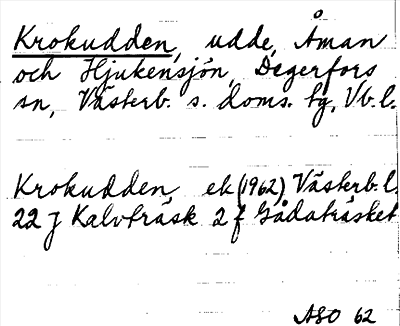 Krokudden, udde, Åman
och Hjukensjön, Degerfors
sn, Västerb. s. doms. tg, Vb. l.
Krokudden ek (1962) Västerb. l.
22 J Kalvträsk 2 f Gådaträsket
ASO 62